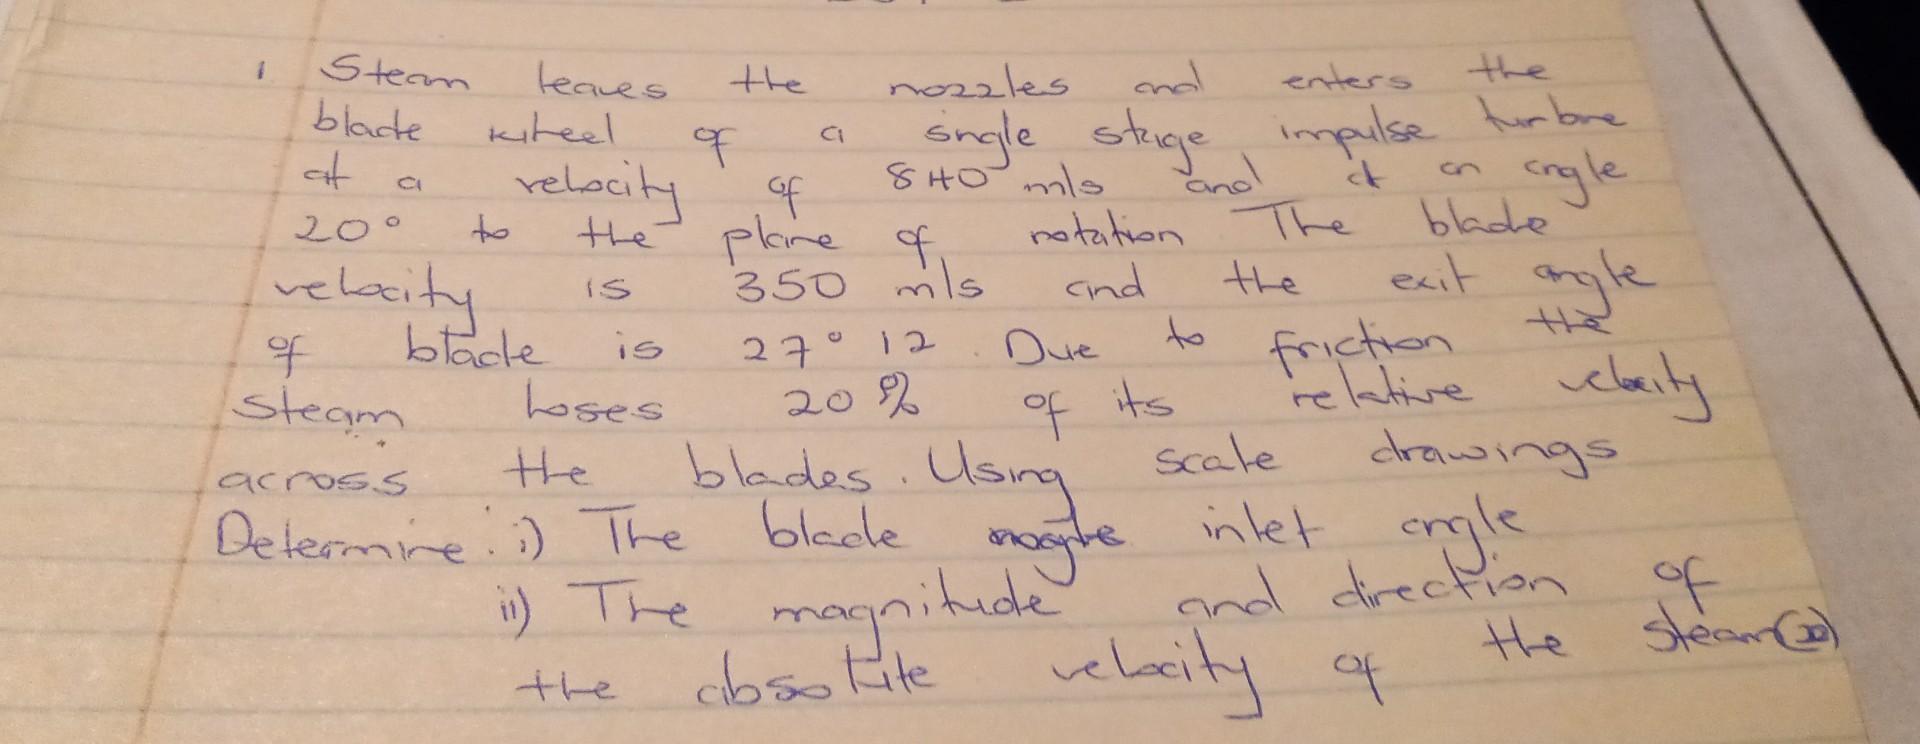 1 Steam leaves the nozzles and enters the
blade wheel of a single stage impulse turbine
at a velocity of 840 m/s and at an angle
20° to the plane of rotation The blade
velocity is 350 m/s and the exit angle
of blade is 27° 12. Due to friction the
steam loses 20% of its relative velocity
across the blades. Using scale drawings
Determine: i) The blade inlet angle
ii) The magnitude and direction of
the absolute velocity of the steam